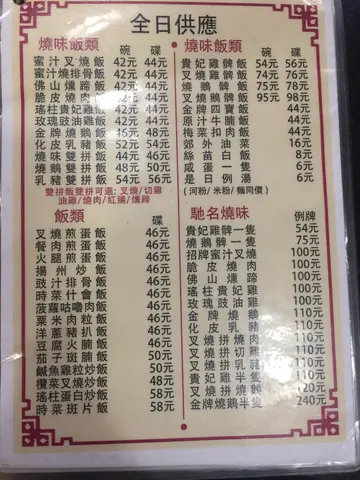 全日供應
燒味飯類 碗 碟
蜜汁叉燒飯 42元 44元
蜜汁燒排骨飯 42元 44元
佛山燻蹄飯 42元 44元
脆皮燒肉飯 42元 44元
瑤柱貴妃雞飯 42元 44元
玫瑰豉油雞飯 42元 44元
金牌燒鵝飯 46元
化皮乳豬飯 52元 54元
燒味雙拼飯 44元 46元
燒鵝雙拼飯 48元 50元
乳豬雙拼飯 54元 56元
雙拼飯雙拼可選: 叉燒/切雞
油雞/燒肉/紅腸/燻蹄
燒味飯類 碗 碟
貴妃雞髀飯 54元 56元
叉燒雞髀飯 74元 76元
燒鵝髀飯 75元 78元
叉燒鵝髀飯 95元 98元
金牌四寶飯 44元
原汁牛腩飯 44元
梅菜扣肉飯 44元
郊外油菜 16元
絲苗白飯 8元
咸蛋一隻 6元
是日例湯 6元
(河粉/米粉/麵同價)
飯類 碟
叉燒煎蛋飯 46元
餐肉煎蛋飯 46元
火腿煎蛋飯 46元
揚州炒飯 46元
豉汁排骨飯 46元
時菜什會飯 46元
菠蘿咕嚕肉飯 46元
粟米肉粒飯 46元
洋蔥豬扒飯 46元
豆腐火腩飯 46元
茄子斑腩飯 50元
鹹魚雞粒炒飯 50元
欖菜叉燒炒飯 48元
瑤柱蛋白炒飯 58元
時菜斑片飯 58元
馳名燒味 例牌
貴妃雞髀一隻 54元
燒鵝髀一隻 75元
招牌蜜汁叉燒 100元
脆皮燒肉 100元
佛山燻蹄 100元
瑤柱貴妃雞 100元
玫瑰豉油雞 100元
金牌燒鵝 110元
化皮乳豬 120元
叉燒拼燒肉 100元
叉燒拼切雞 100元
叉燒拼乳豬 110元
貴妃雞半隻 110元
叉燒拼燒鵝 110元
瑤柱貴妃雞半隻 120元
金牌燒鵝半隻 240元